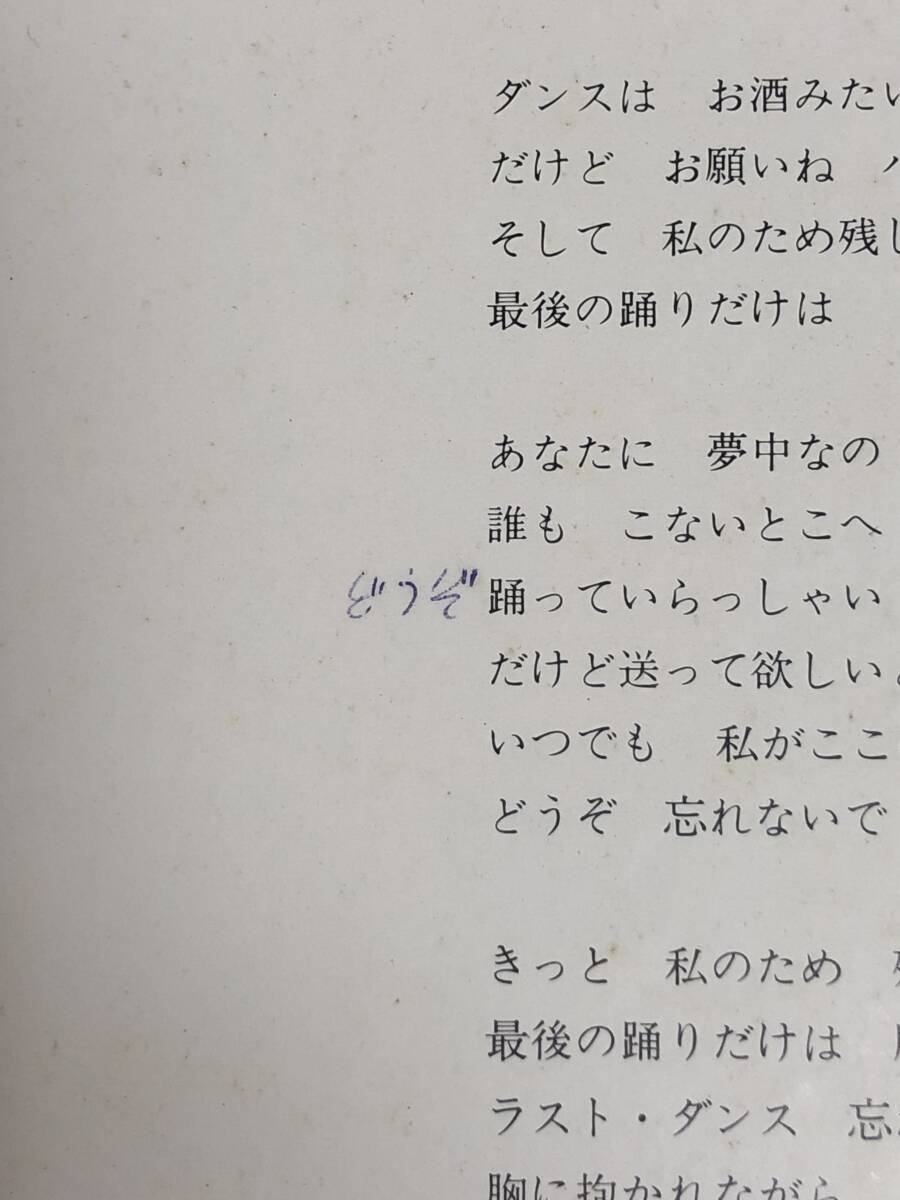 ダンスは　お酒みたい
だけど　お願いね　ハ
そして　私のため残し
最後の踊りだけは
あなたに　夢中なの
誰も　こないとこへ
どうぞ踊っていらっしゃい
だけど送って欲しい
いつでも　私がここ
どうぞ　忘れないで
きっと　私のため
最後の踊りだけは
ラスト・ダンス　忘
胸に抱かれながら